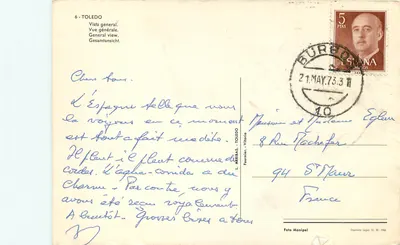 6 - TOLEDO
Vista general.
Vue générale.
General view.
Gesamtansicht.
5
PTAS
ESPAÑA
BURGOS
21.MAY.73.3
10
Chers tous.
L'Espagne telle que nous
la voyons en ce moment
est tout a fait inédite.
Il pleut il pleut comme des
cordes. L'agua-corrida a du
charme. Par contre, nous y
avons été reçu royalement
A bientôt. Grosses bises a tous
Monsieur et Madame
8 Rue
94 St Maur
France
TOLEDO
Foto Monopol